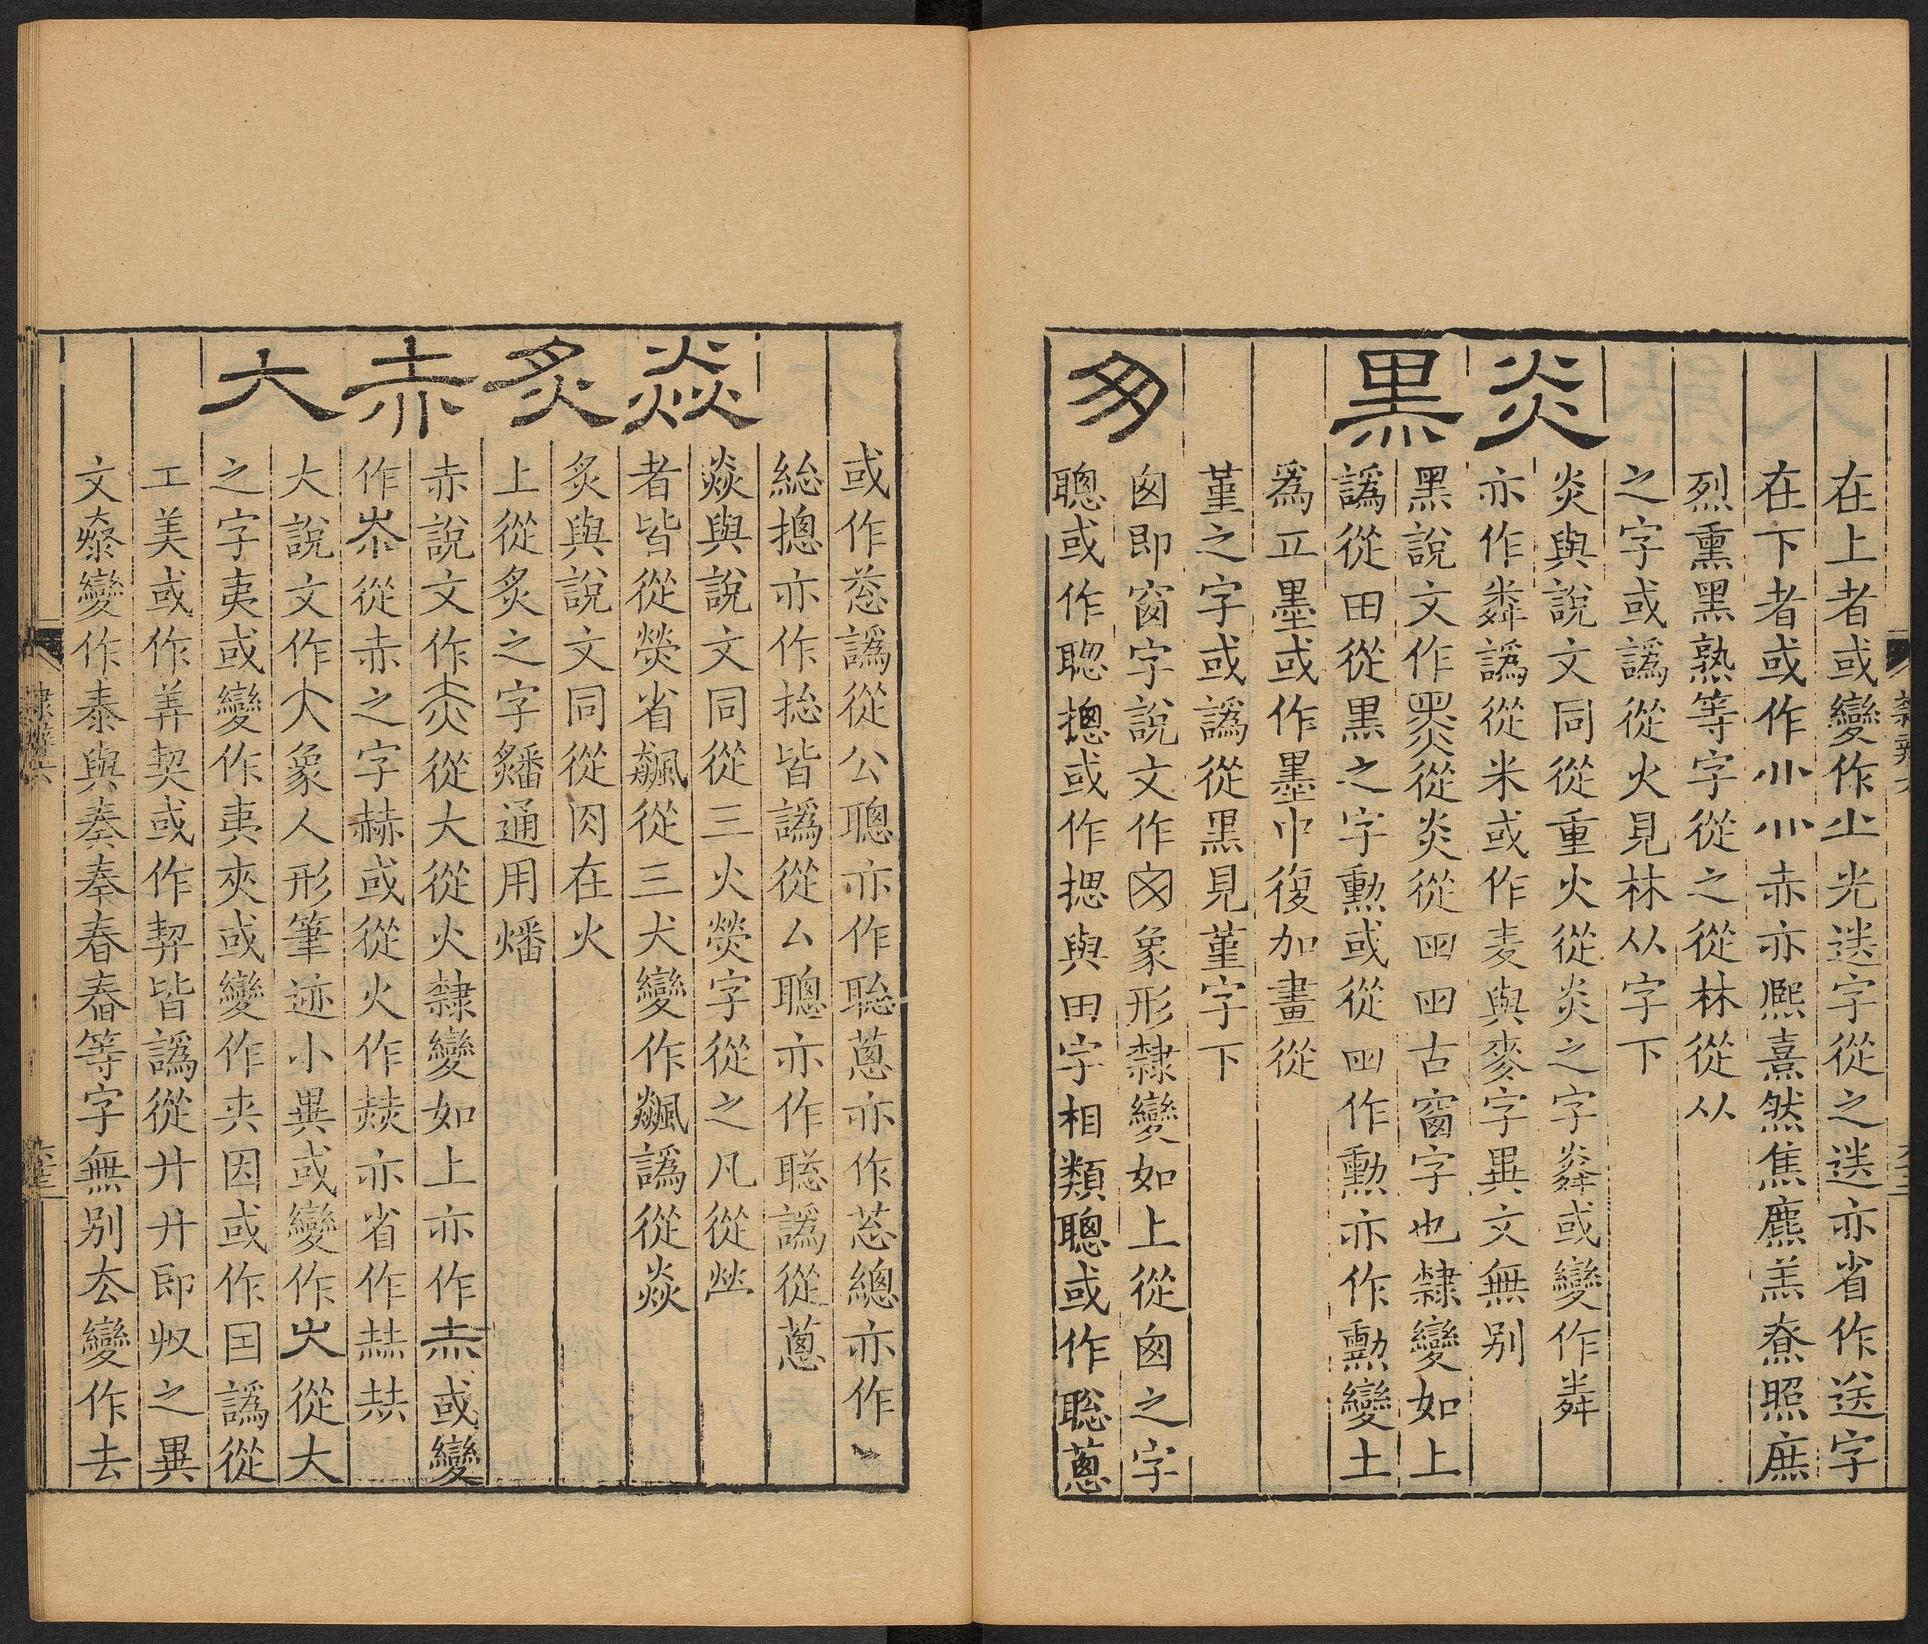 在上者或變作光送字從之送亦省作送字
在下者或作赤亦熙熹然焦麃羔尞照庶
烈熏黑熟等字從之從林從从
之字或譌從火見林从字下
炎
炎與說文同從重火從炎之字粦或變作粦
亦作粦譌從米或作麦與麥字異文無別
黑
黑說文作從炎從囧囧古窗字也隸變如上
譌從田從黑之字勳或從作勳亦作勳變土
爲墨或作墨巾復加畫從
堇之字或譌從黑見堇字下
囱即窗字說文作囱象形隸變如上從囱之字
聰或作聦摠或作揔與田字相類聰或作聡蔥
或作蒠譌從公聰亦作聡蔥亦作總亦作
総摠亦作捴皆譌從厶聰亦作聡譌從蔥
焱
焱與說文同從三火熒字從之凡從
者皆從熒省飆從三犬變作飈譌從焱
炙
炙與說文同從肉在火
上從炙之字䊩通用燔
赤
赤說文作從大從火隸變如上亦作或變
作從赤之字赫或從火作亦省作
大
大說文作大象人形筆迹小異或變作從大
之字夷或變作夾或變作因或作国譌從
工美或作契或作皆譌從廾廾即収之異
文變作泰與奏奉春舂等字無別厺變作去